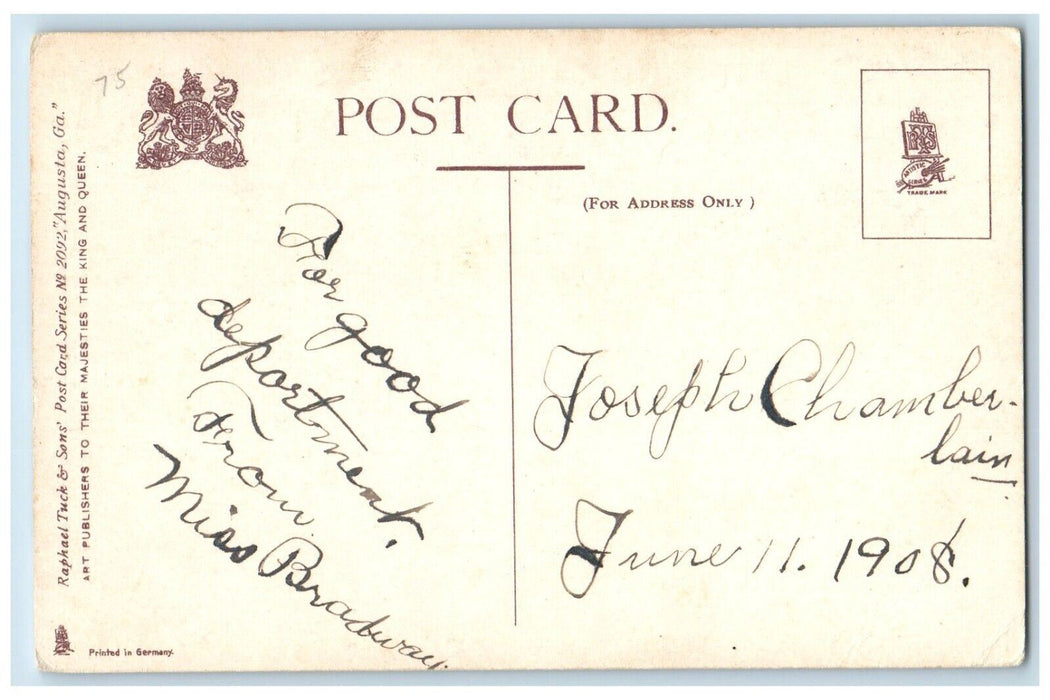 75
POST CARD.
(FOR ADDRESS ONLY)
Raphael Tuck & Sons' Post Card Series No 2092, "Augusta, Ga."
ART PUBLISHERS TO THEIR MAJESTIES THE KING AND QUEEN.
ARTISTIC
SERIES
TRADE MARK
For good
deportment.
From
Miss Bradway.
Joseph Chamber-
lain
June 11. 1908.
Printed in Germany.